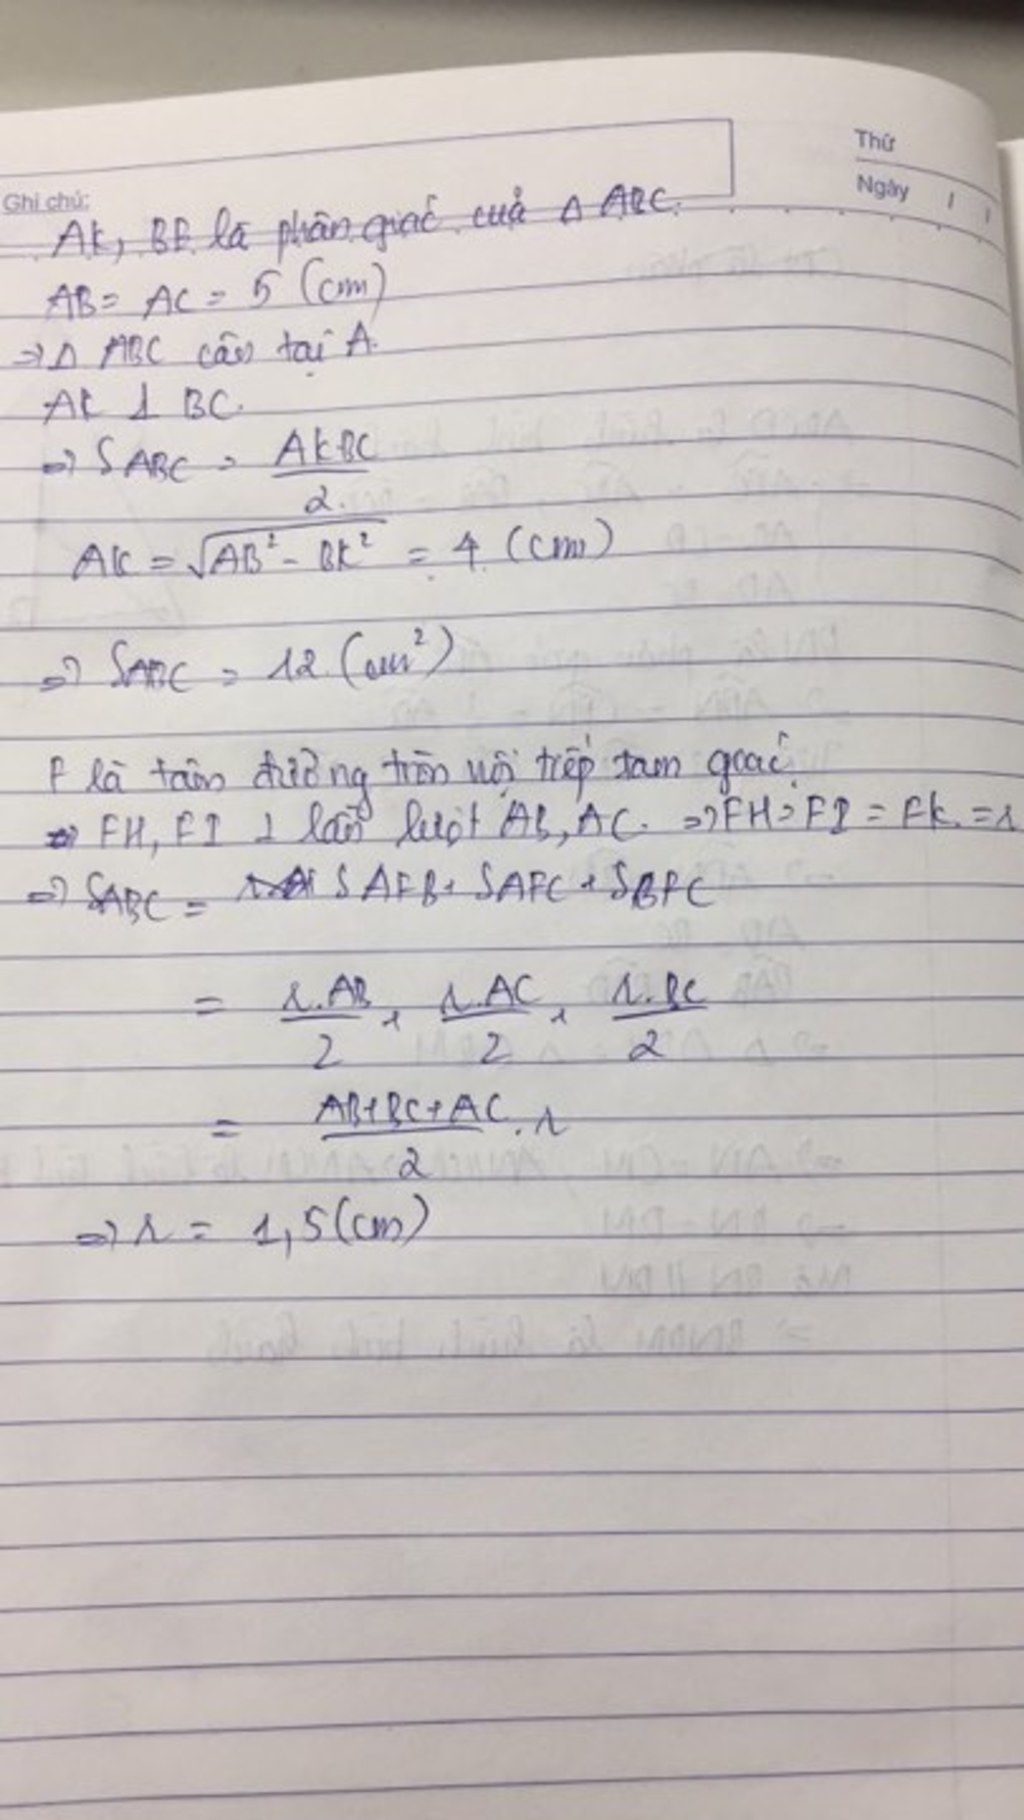 Thứ
Ngày / /
Ghi chú:
AK, BE là phân giác của Δ ABC.
AB = AC = 5 (cm)
⇒ Δ ABC cân tại A.
AK ⊥ BC.
⇒ SABC = AK.BC / 2.
AK = √(AB² - BK²) = 4 (cm)
⇒ SABC = 12 (cm²)
F là tâm đường tròn nội tiếp tam giác.
⇒ FH, FI ⊥ lần lượt AB, AC. ⇒ FH = FI = FK = r
⇒ SABC = SAFB + SAFC + SBFC
= r.AB / 2 + r.AC / 2 + r.BC / 2
= AB+BC+AC / 2 . r
⇒ r = 1,5 (cm)